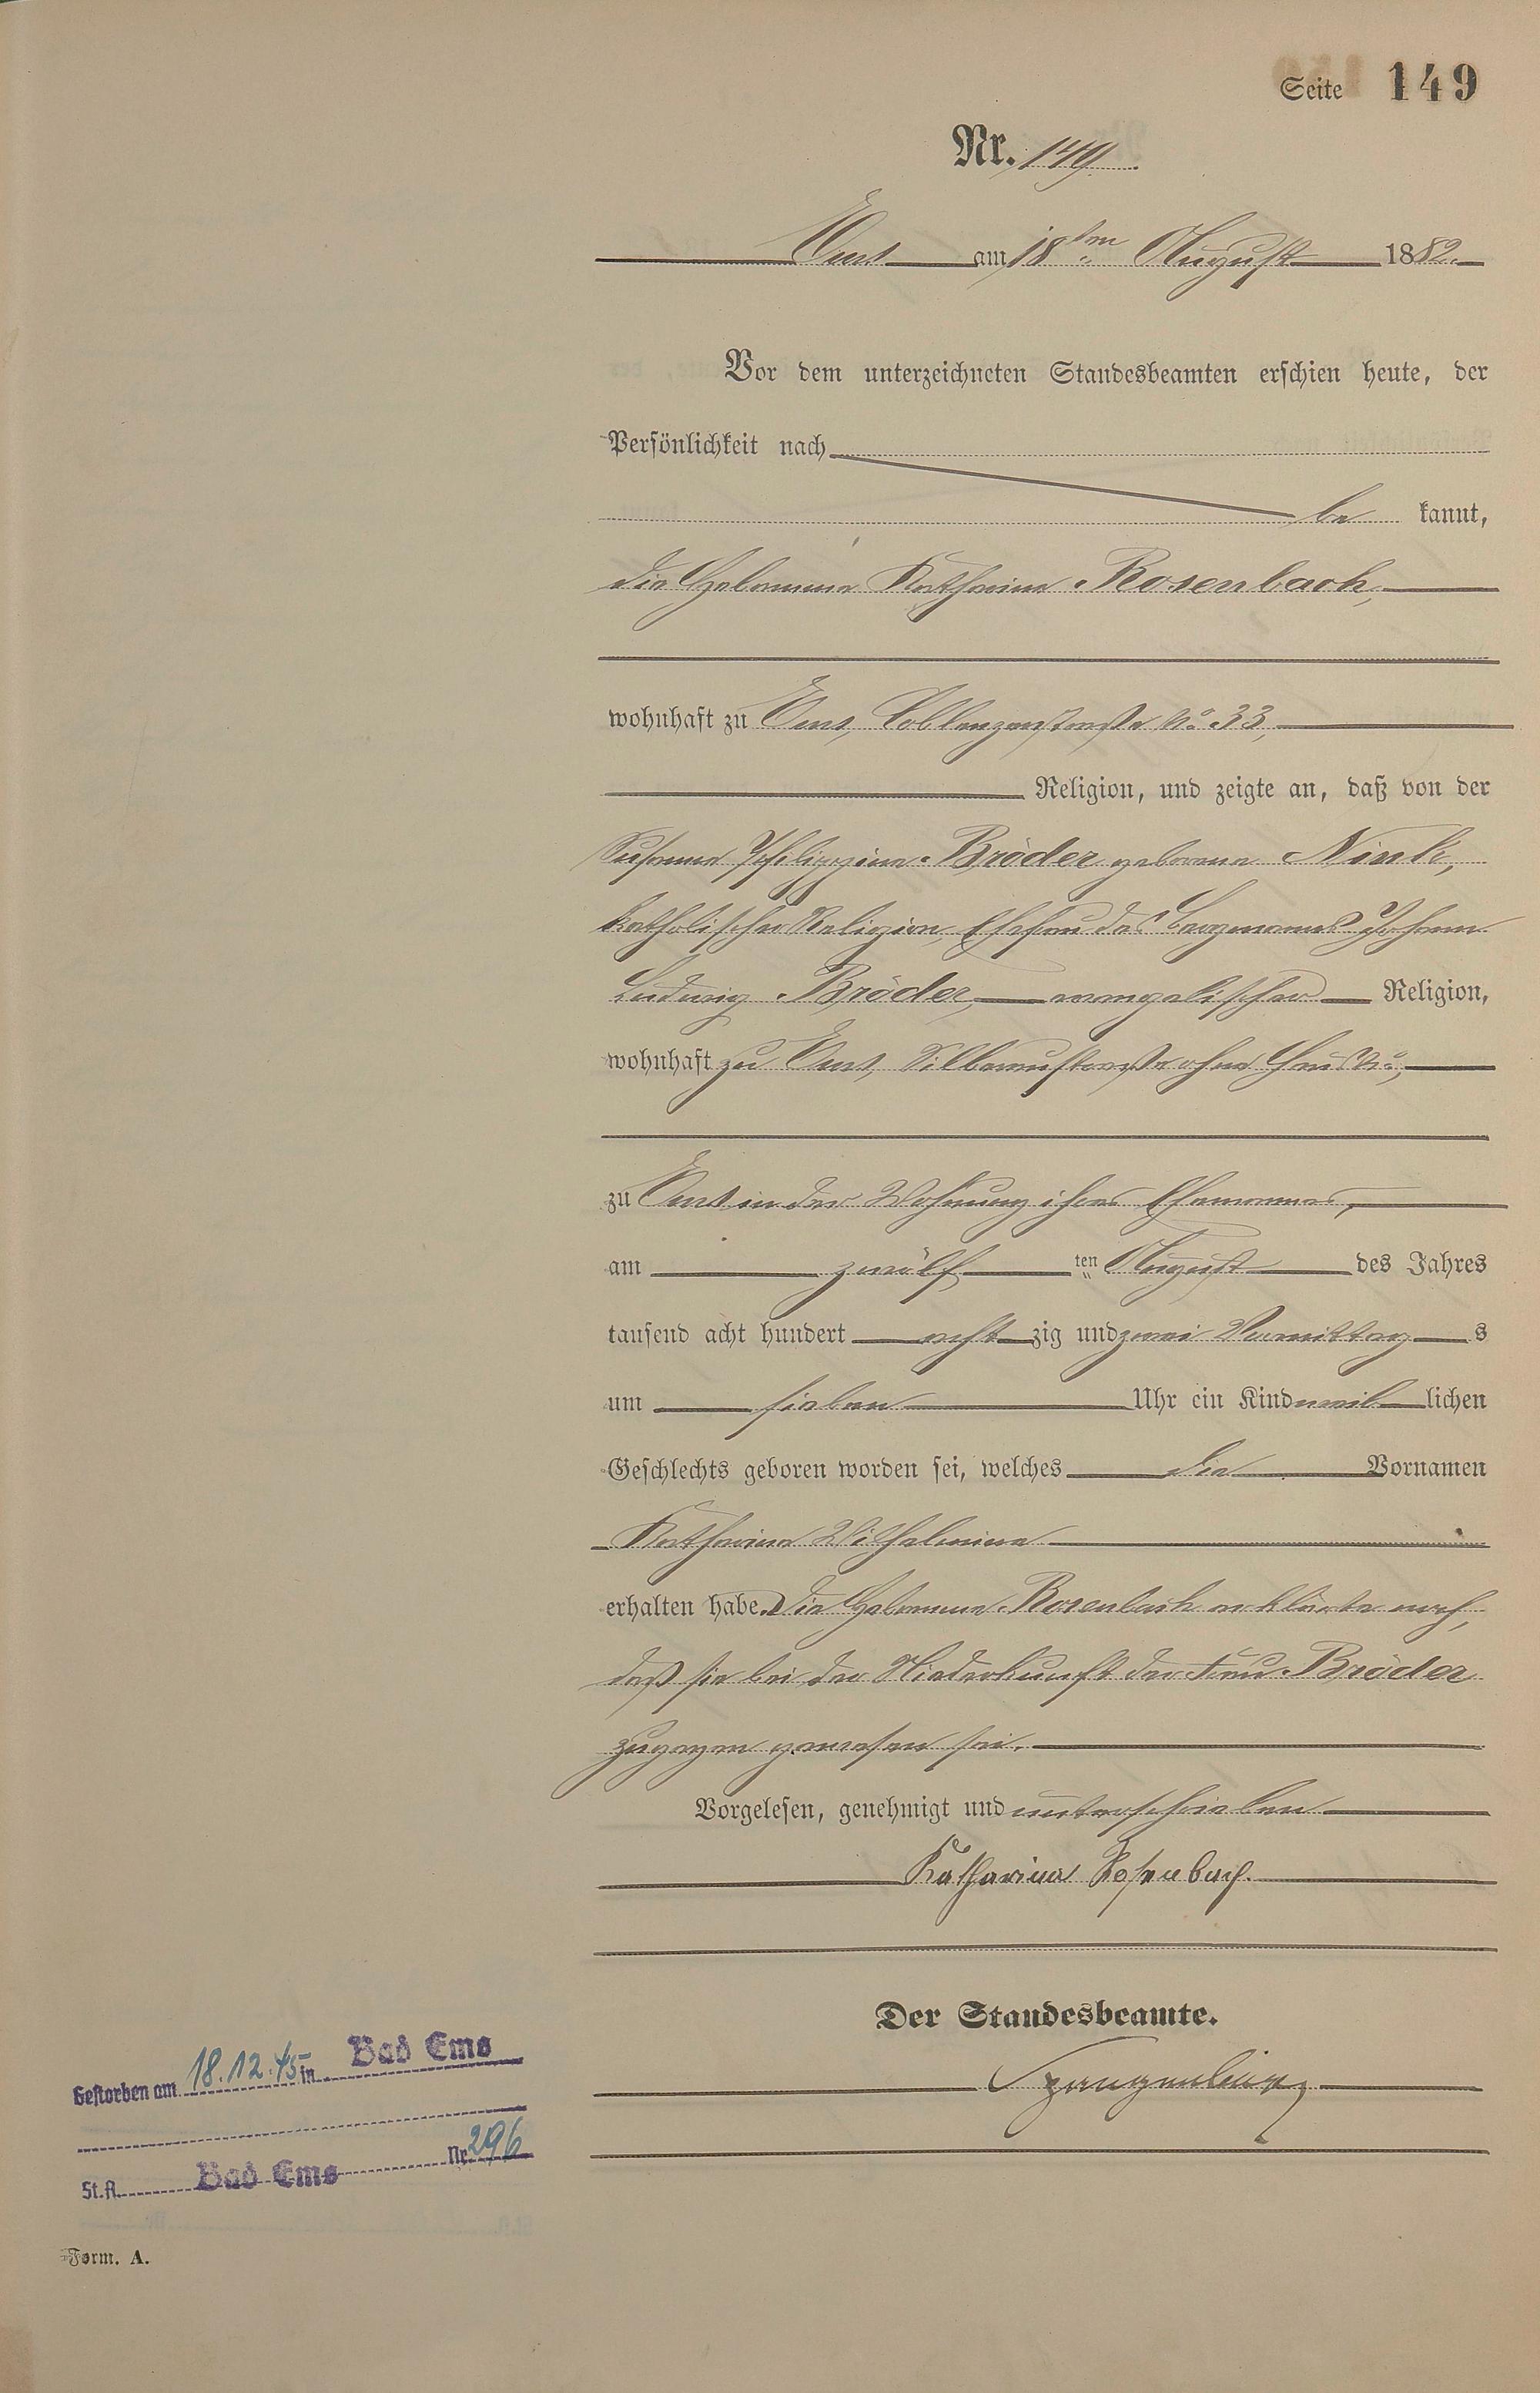 Seite 149
Nr. 149.
Ems am 18ten August 1882.
Vor dem unterzeichneten Standesbeamten erschien heute, der
Persönlichkeit nach
be kannt,
die Hebamme Katharina Rosenbach,
wohnhaft zu Ems, Coblenzerstraße No 33,
Religion, und zeigte an, daß von der
Susanna Philippina Bröder geborene Nink,
katholischer Religion, Ehefrau des Bergmannes Johann
Ludwig Bröder, evangelischer Religion,
wohnhaft zu Ems, Silberaustraße ohne Haus No,
zu Ems in der Wohnung ihres Ehemannes,
am zwölf ten August des Jahres
tausend acht hundert acht zig und zwei Vormittag s
um sieben Uhr ein Kind weib lichen
Geschlechts geboren worden sei, welches die Vornamen
Katharina Wilhelmina
erhalten habe. Die Hebamme Rosenbach erklärte noch,
daß sie bei der Niederkunft der Frau Bröder
zugegen gewesen sei.
Vorgelesen, genehmigt und unterschrieben
Katharina Rosenbach.
Der Standesbeamte.
Gestorben am 18.12.45 in Bad Ems
St.A. Bad Ems Nr. 296
Form. A.